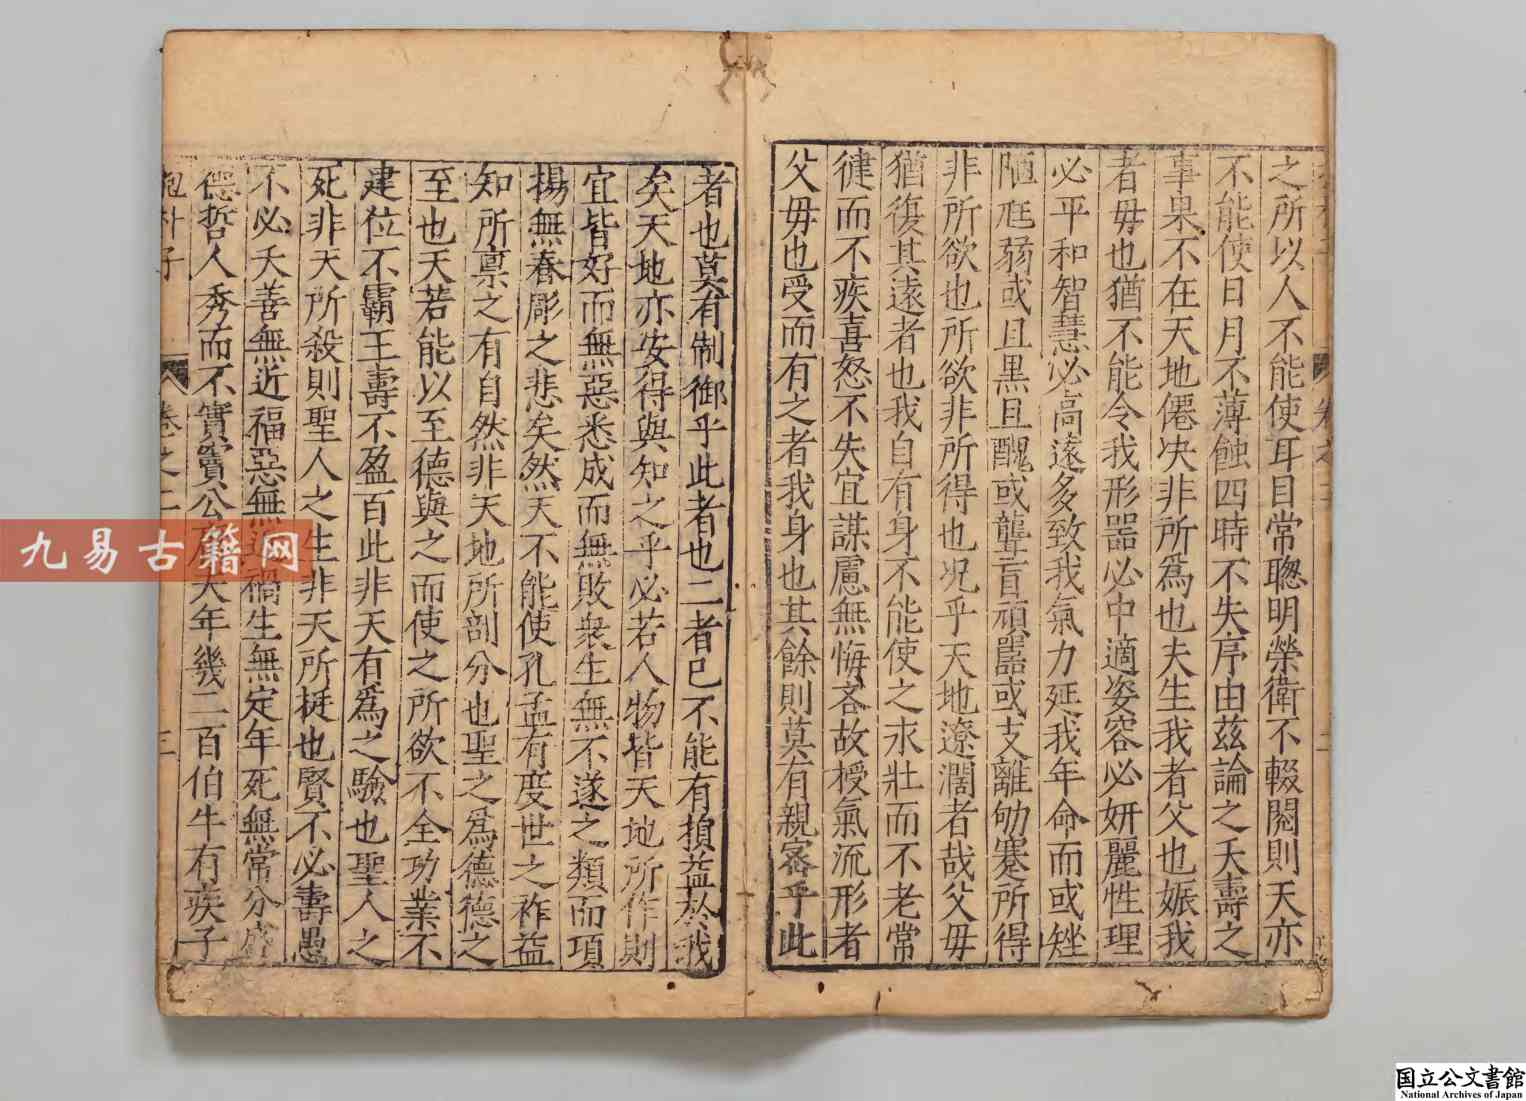 之所以人不能使耳目常聰明榮衛不輟閡則天亦
不能使日月不薄蝕四時不失序由茲論之夭壽之
事果不在天地僊决非所爲也夫生我者父也娠我
者母也猶不能令我形器必中適姿容必妍麗性理
必平和智慧必高遠多致我氣力延我年命而或矬
陋尪弱或且黑且醜或聾盲頑嚚或支離劬蹇所得
非所欲也所欲非所得也况乎天地遼濶者哉父母
猶復其遠者也我自有身不能使之永壯而不老常
徤而不疾喜怒不失宜謀慮無悔吝故授氣流形者
父母也受而有之者我身也其餘則莫有親密乎此
者也莫有制御乎此者也二者已不能有損益於我
矣天地亦安得與知之乎必若人物皆天地所作則
宜皆好而無惡悉成而無敗衆生無不遂之類而項
揚無春彫之悲矣然天不能使孔孟有度世之祚益
知所禀之有自然非天地所剖分也聖之爲德德之
至也天若能以至德與之而使之所欲不全功業不
建位不霸王壽不盈百此非天有爲之驗也聖人之
死非天所殺則聖人之生非天所挺也賢不必壽愚
不必夭善無近福惡無近禍生無定年死無常分盛
德哲人秀而不實竇公庸夫年幾二百伯牛有疾子
抱朴子
卷之二
三
卷之二
二
九易古籍网
国立公文書館
National Archives of Japan